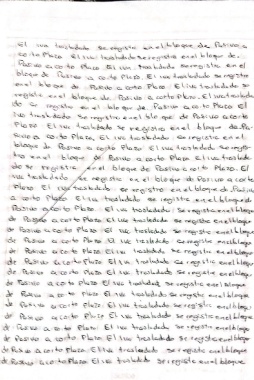 El iva trasladado se registra en el bloque de Pasivo a
corto Plazo. El iva trasladado se registra en el bloque de
Pasivo a corto Plazo. El iva trasladado se registra en el
bloque de Pasivo a corto Plazo. El iva trasladado se registra
en el bloque de Pasivo a corto Plazo. El iva trasladado se
registra en el bloque de Pasivo a corto Plazo. El iva traslada
do se registra en el bloque de Pasivo a corto Plazo El
iva trasladado se registra en el bloque de Pasivo a corto
Plazo El iva trasladado se registra en el bloque de Pa
sivo a corto Plazo, El iva trasladado se registra en el
bloque de Pasivo a corto Plazo. El iva trasladado se regis
tra en el bloque de Pasivo a corto Plazo El iva traslada
do se registra en el bloque de Pasivo a corto Plazo. El
iva trasladado se registra en el bloque de Pasivo a corto
Plazo. El iva trasladado se registra en el bloque de Pasivo
a corto Plazo. El iva trasladado se registra en el bloque
de Pasivo a corto Plazo. El iva trasladado se registra en el bloque
de Pasivo a corto Plazo. El iva trasladado se registra en el bloque
de Pasivo a corto Plazo. El iva trasladado se registra en el bloque
de Pasivo a corto Plazo. El iva trasladado se registra en el bloque
de Pasivo a corto Plazo. El iva trasladado se registra en el bloque
de Pasivo a corto Plazo El iva trasladado se registra en el bloque
de Pasivo a corto Plazo El iva trasladado se registra en el bloque
de Pasivo a corto Plazo. El iva trasladado se registra en el bloque
de Pasivo a corto Plazo. El iva trasladado se registra en el bloque
de Pasivo a corto Plazo. El iva trasladado se registra en el bloque
de Pasivo a corto Plazo. El iva trasladado se registra en el bloque
de Pasivo a corto Plazo. El iva trasladado se registra en el bloque